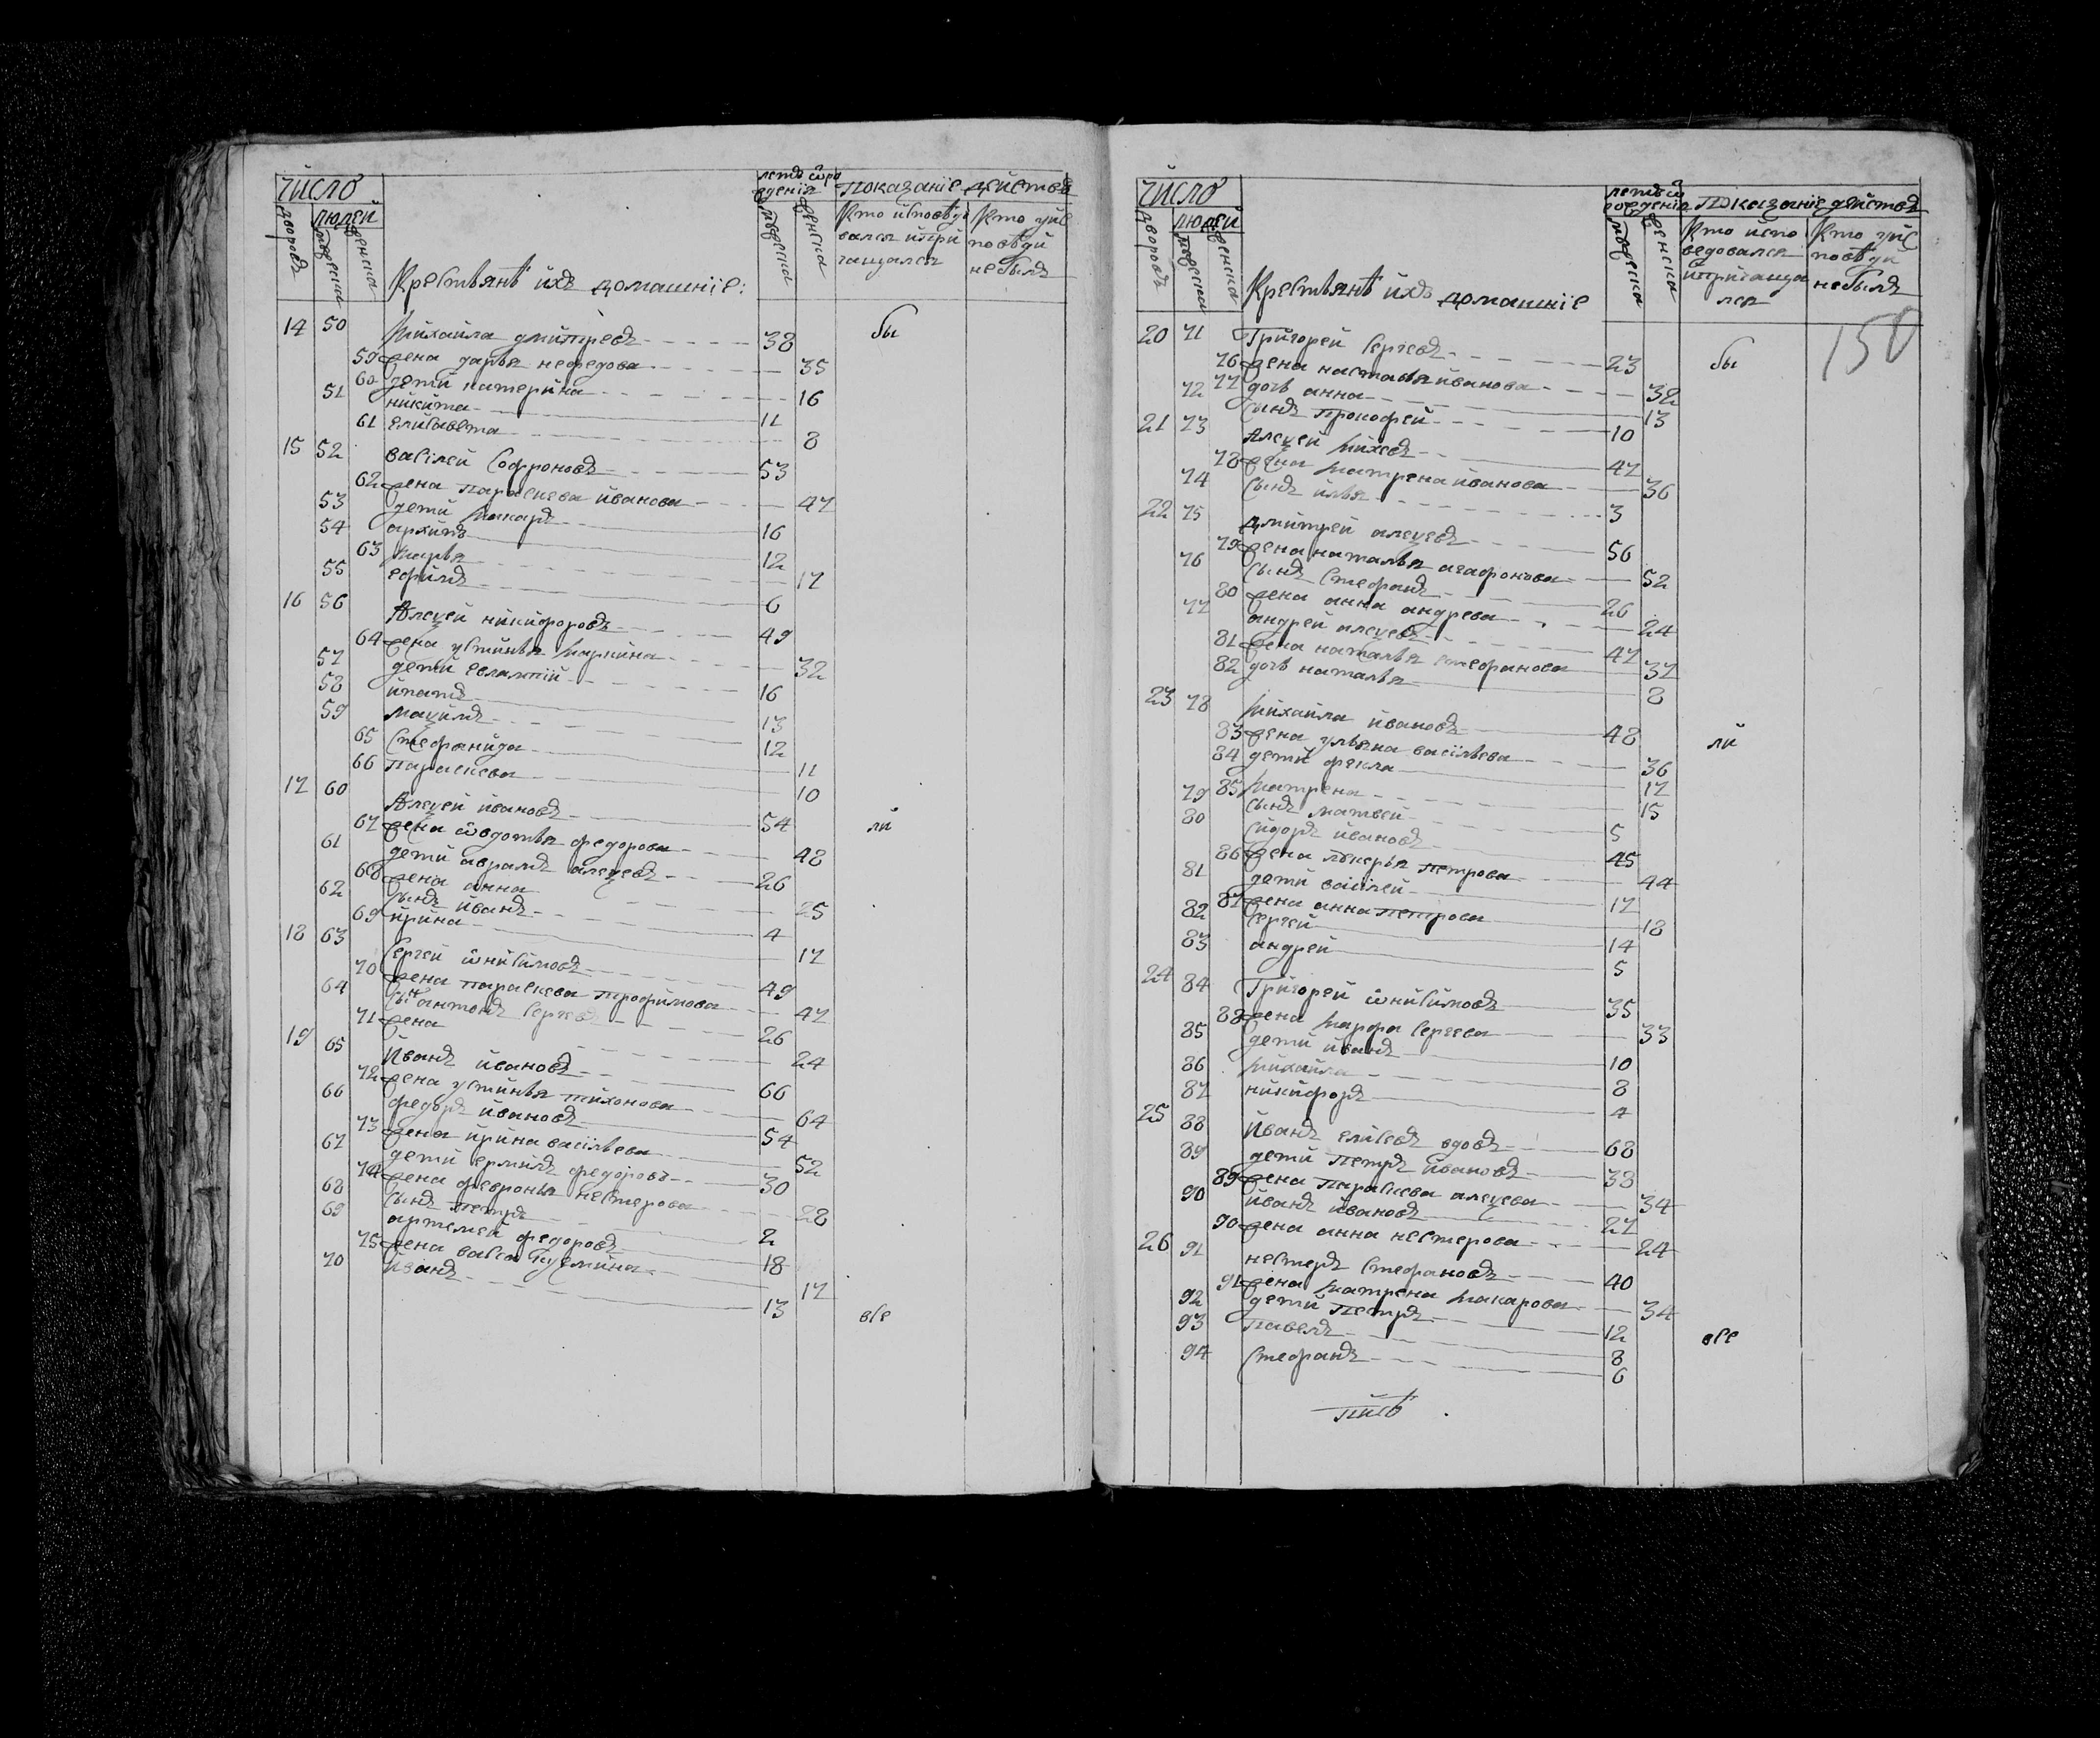 число
дворовъ
людей
мужеска
женска
Крестьянѣ ихъ домашніе:
летъ ѿ ро
жденія
мужеска
женска
Показаніе действъ
Кто исповѣдо
вался и при
чащался
Кто у ис
повѣди
не былъ
14 50 Михайла дмитревъ 38 бы
59 жена дарья нефедова 35
60 дети катерина 16
51 никита 11
61 елисавета 8
15 52 василей Софроновъ 53
62 жена параскева иванова 47
53 дети макаръ 16
54 архипъ 12
63 марья 17
55 ефимъ 6
16 56 Алеѯей никифоровъ 49
64 жена устинья маркина 32
57 дети евлампий 16
58 ипатъ 13
59 маѯимъ 12
65 Стефанида 11
66 параскева 10
17 60 Алеѯей ивановъ 54 ли
67 жена ѿвдотья федорова 48
61 дети аврамъ алеѯевъ 26
68 жена анна 25
62 сынъ иванъ 4
69 ирина 17
18 63 Сергей ѿнисимовъ 49
70 жена параскева трофимова 47
64 сынъ антонъ Сергевъ 26
71 жена 24
19 65 Иванъ ивановъ 66
72 жена устинья тихонова 64
66 федоръ ивановъ 54
73 жена ирина васильева 52
67 дети ермилъ федоровъ 30
74 жена февронья нестерова 28
68 сынъ петръ 2
69 артемей федоровъ 18
75 жена васса 17
70 иванъ 13 все
число
дворовъ
людей
мужеска
женска
Крестьянѣ ихъ домашніе
летъ ѿ
рожденія
мужеска
женска
Показаніе действъ
Кто испо
ведовался
и причаща
лся
Кто у ис
повѣди
не былъ
150
20 71 Григорей Сергевъ 23 бы
76 жена настасья иванова 32
77 дочь анна 13
72 сынъ прокофей 10
21 73 Алеѯей михевъ 47
78 жена матрена иванова 36
74 сынъ илья 3
22 75 дмитрей алеѯевъ 56
79 жена наталья агафонова 52
76 сынъ Стефанъ 26
80 жена анна андрева 24
77 андрей алеѯевъ 47
81 жена наталья стефанова 37
82 дочь наталья 8
23 78 Михайла ивановъ 48 ли
83 жена ульяна васильева 36
84 дети фекла 17
85 матрена 15
79 сынъ матвей 5
80 Сидоръ ивановъ 45
86 жена лукерья петрова 44
81 дети василей 17
87 жена анна петрова 18
82 Сергей 14
83 андрей 5
24 84 Григорей ѿнисимовъ 35
88 жена марфа Сергева 33
85 дети иванъ 10
86 михайла 8
87 никифоръ 4
25 88 Иванъ елисевъ вдовъ 68
89 дети петръ ивановъ 38
89 жена параскева алеѯева 34
90 иванъ ивановъ 27
90 жена анна нестерова 24
26 91 нестеръ Стефановъ 40
91 жена матрена макарова 34
92 дети петръ 12 все
93 павелъ 8
94 Стефанъ 6